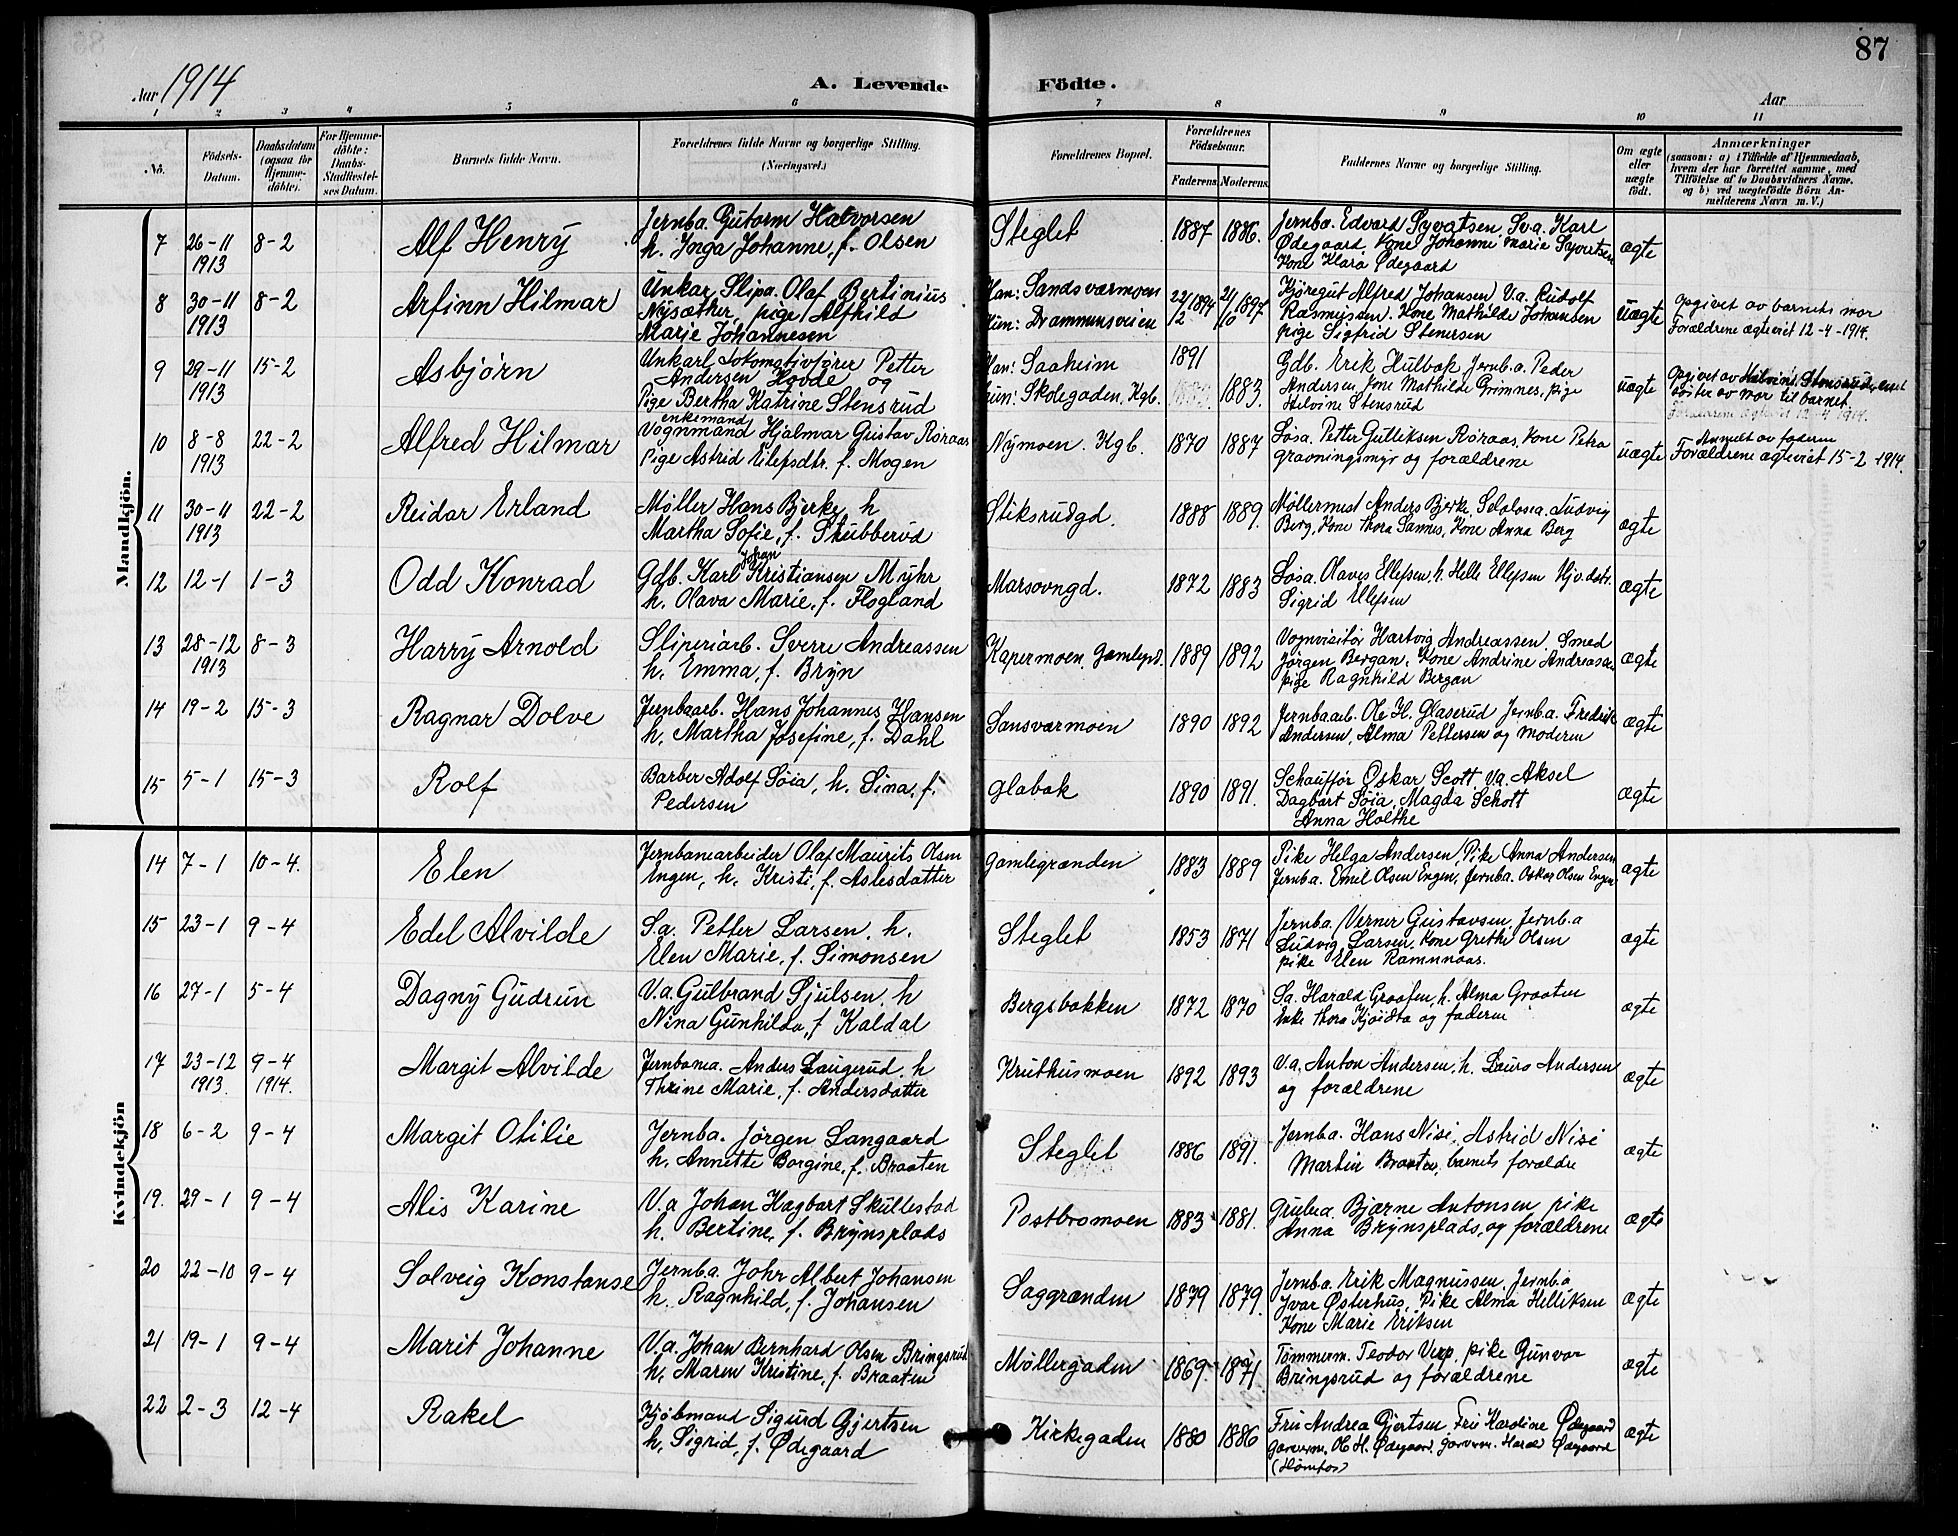 87
Aar 1914
A. Levende Födte.
Aar
1 2 3 4 5 6 7 8 9 10 11
No.
Födsels-
Datum.
Daabsdatum
(ogsaa for
Hjemme-
döbte).
For Hjemme-
döbte:
Daabs-
Stadfæstel-
ses Datum.
Barnets fulde Navn.
Forældrenes fulde Navne og borgerlige Stilling.
(Næringsvei.)
Forældrenes Bopæl.
Forældrenes
Födselsaar.
Faderens. Moderens.
Faddernes Navne og borgerlige Stilling.
Om ægte
eller
uægte
födt.
Anmærkninger
(saasom: a) i Tilfælde af Hjemmedaab,
hvem der har forrettet samme, med
Tilföielse af to Daabsvidners Navne,
og b) ved uægtefödte Börn An-
melderens Navn m. V.)
Mandkjön.
7 26-11 1913 8-2 Alf Henry
Jernba. Gutorm Halvorsen
h. Inga Johanne, f. Olsen
Steglet 1887 1886.
Jernba. Edvard Syvertsen, Sv.a. Karl
Ødegaard, Kone Johanne Marie Syvertsen
Kone Klara Ødegaard
ægte
8 30-11 1913 8-2 Arfinn Hilmar
Unkar, Slipa. Olaf Bertinius
Nysæther, pige Alfhild
Marie Johannesen
Han: Sandsværmoen
Hun: Drammensveien
22/2 1894 21/10 1897
Kjøregut Alfred Johansen V.a. Rudolf
Rasmussen. Kone Mathilde Johansen
pige Sigfrid Stenersen
uægte
Opgivet av barnets mor
Forældrene ægteviet 12-4-1914.
9 29-11 1913 15-2 Asbjørn
Unkarl Lokomotivfører Petter
Andersen Hovde og
Pige Bertha Katrine Stensrud
Han: Saaheim
Hun: Skolegaden, Kgb.
1891 1883.
Gdb. Erik Hulbak Jernb.a. Peder
Andersen, Kone Mathilde Grimnes, pige
Helvine Stensrud
uægte
Opgivet av Helvine Stensrud
søster av mor til barnet
Forældrene ægteviet 12-4-1914.
10 8-8 1913 22-2 Alfred Hilmar
enkemand
Vognmand Hjalmar Gustav Røraas
Pige Astrid Eilefsdtr. f. Mogen
Nymoen. Kgb. 1870 1887
Søsa. Petter Gulliksen Røraas, Kone Petra
Gravningsmyr og forældrene
uægte
Anmelt av faderen
Forældrene ægteviet 15-2-1914.
11 30-11 1913 22-2 Reidar Erland
Møller Hans Bjerke, h
Martha Sofie, f. Skubberud
Stiksrudgd. 1888 1889.
Møllermest Anders Bjerke, Selolosea. Ludvig
Berg, Kone Thora Sannes, Kone Anna Berg
ægte
12 12-1 1-3 Odd Konrad
Johan
Gdb. Karl Kristiansen Myhr
h. Olava Marie, f. Flogland
Marsovngd. 1872 1883
Søsa. Olaves Ellefsen, h. Helle Ellefsen
Sigrid Ellefsen
ægte
13 28-12 1913 8-3 Harry Arnold
Sliperiarb. Sverre Andreassen
h. Emma, f. Bryn
Kapermoen, Gamlepd. 1889 1892
Vognvisitør Hartvig Andreassen. Smed
Jørgen Bergan. Kone Andrine Andreasen
pige Ragnhild Bergan
ægte
14 19-2 15-3 Ragnar Dolve
Jernbaarb. Hans Johannes Hansen
h. Martha Josefine, f. Dahl
Sansværmoen 1890 1892
Jernbaarb. Ole H. Glaserud Jernb.a. Fredrik
Andersen, Alma Pettersen og moderen
ægte
15 5-1 15-3 Rolf
Barber Adolf Søia, h. Sina, f.
Pedersen
Glabak 1890 1891.
Schauffør Oskar Scott V.a. Aksel
Dagbart Søia, Magda Schott
Anna Holthe
ægte
Kvindekjön
14 7-1 10-4. Elen
Jernbanearbeider Olaf Maurits Olsen
Engen, h. Kristi, f. Aslesdatter
Gamlegrænden 1883 1889
Pike Helga Andersen, Pike Anna Andersen
Jernb.a. Emil Olsen Engen, Jernba. Oskar Olsen Engen
ægte
15 23-1 9-4 Edel Alvilde
S.a. Petter Larsen. h.
Elen Marie, f. Simonsen
Steglet 1853 1871
Jernb.a. Verner Gustavsen, Jernb.a
Ludvig Larsen, Kone Grethe Olsen
pike Elen Ramnnaas.
ægte
16 27-1 5-4 Dagny Gudrun
V.a. Gulbrand Sjulsen, h
Nina Gunhilda, f Kaldal
Bergsbakken 1872 1870
Sa. Harald Graaten, h. Alma Graaten
Enke Thora Kjøidta og faderen
ægte
17 23-12 1913. 9-4 1914. Margit Alvilde
Jernbanea. Anders Laugerud. h
Thrine Marie, f. Andersdatter
Kruthusmoen 1892 1893
V.a. Anton Andersen, h. Laura Andersen
og forældrene
ægte
18 6-2 9-4 Margit Otilie
Jernba. Jørgen Langaard
h. Annette Borgine, f. Braaten
Steglet 1886 1891.
Jernb.a. Hans Nisi, Astrid Nisi
Martin Braaten, barnets forældre
ægte
19. 29-1 9-4 Alis Karine
V.a Johan Hagbart Skullestad
h. Bertine, f. Brynsplads
Postbromoen 1883 1881.
Grubea Bjarne Antonsen, pike
Anna Brynsplads, og forældrene
ægte
20 22-10 9-4 Solveig Konstanse
Jernb.a. Johr Albert Johansen
h. Ragnhild, f. Johansen
Saggrænden 1879 1879.
Jernb.a Erik Magnussen, Jernb.a
Ivar Østerhus, Pike Alma Helliksen
Kone Marie Eriksen
ægte
21 19-1 9-4 Marit Johanne
V.a. Johan Bernhard Olsen Bringsrud
h. Maren Kristine, f. Braaten
Møllergaden 1869. 1871.
Tømmerm. Teodor Verp, pike Gunvor
Bringsrud og forældrene
ægte
22 2-3 12-4 Rakel
Kjøbmand Sigurd Gjertsen
h. Sigrid, f. Ødegaard
Kirkegaden 1880 1886
Fru Andrea Gjertsen Fru Karoline Ødegaard
Garverm. Ole H. Ødegaard, garverm. Harald Ødegaard
(Hønefos)
ægte